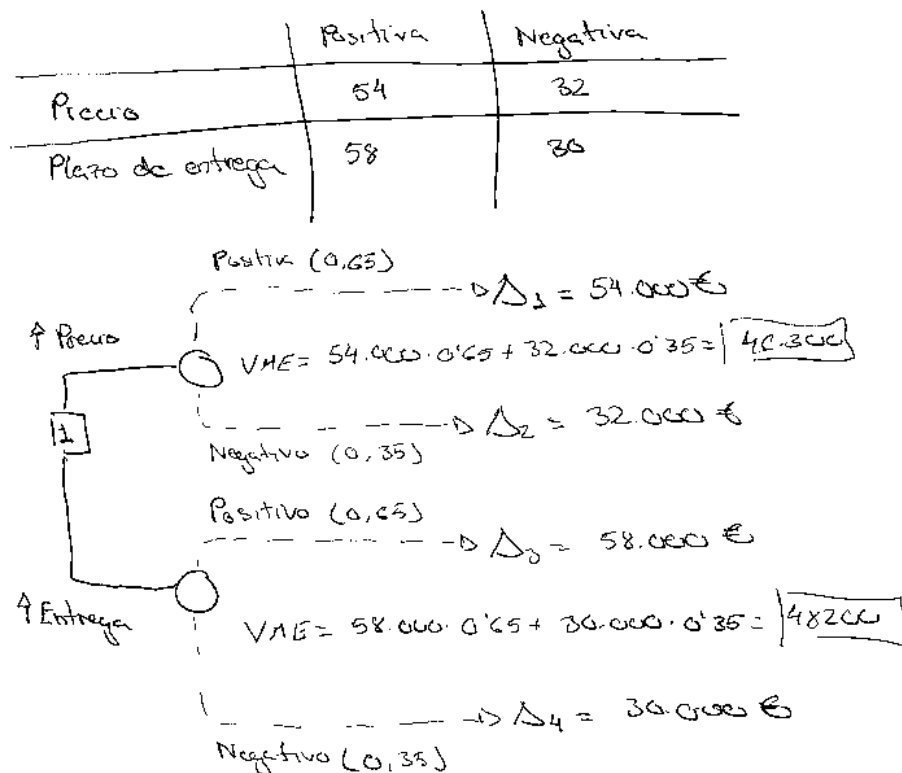 Positiva Negativa
Precio 54 32
Plazo de entrega 58 30
Positiva (0,65)
Δ1 = 54.000€
↑ Precio
VME = 54.000 · 0'65 + 32.000 · 0'35 = 46.300
1
Δ2 = 32.000 €
Negativo (0,35)
Positivo (0,65)
Δ3 = 58.000 €
↑ Entrega
VME = 58.000 · 0'65 + 30.000 · 0'35 = 48200
Δ4 = 30.000 €
Negativo (0,35)